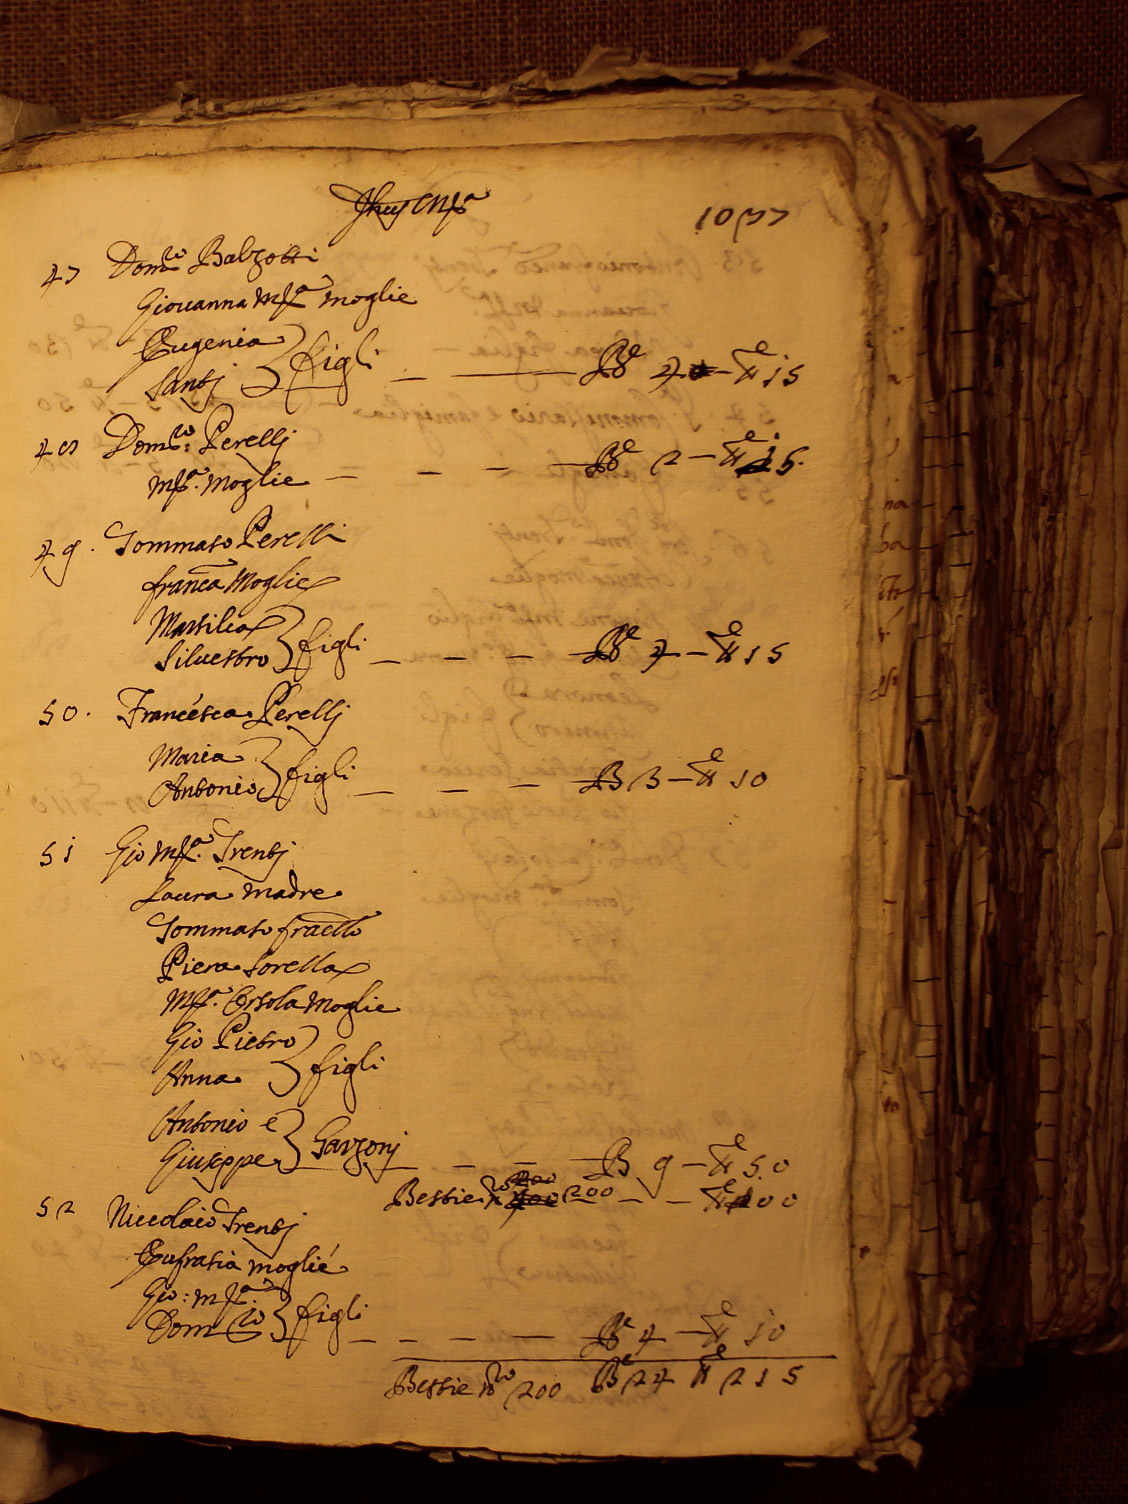 Jhus Mra 1677
47 Domco Balzotti
Giouanna Mra moglie
Eugenia
Santj } figli — — Be 4 — £e 15
48 Domco: Perellj
Mra. Moglie — — — Be 2 — £e 15.
49. Tommaso Perelli
franca Moglie
Marsilia
Siluestro } figli — — — Be 4 — £e 15
50. Francesca Perellj
Maria
Antonio } figli — — — B 3 — £e 10
51 Gio Mra. Trentj
Laura madre
Tommaso fratello
Piera Sorella
Mra. Orsola Moglie
Gio Pietro
Anna } figli
Antonio e
Giuseppe } Garzonj — — — B 9 — £e 50
Bestie no 200 — — £e 100
52 Niccolaio Trentj
Eufrasia moglie
Gio: Mra
Domco } figli — — — — Be 4 — £e 10
Bestie no 200 Be 24 £e 215